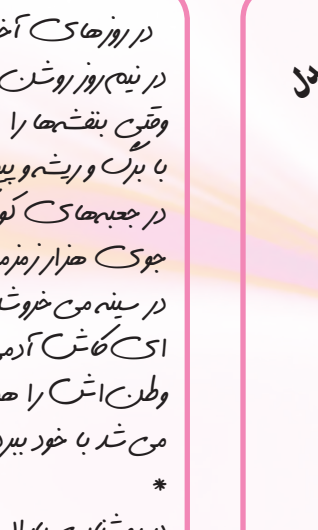 در روزهای آخ
در نیم‌روز روشن
وقتی بنفشه‌ها را
با برگ و ریشه و پی
در جعبه‌های کو
جوی هزار زمزم
در سینه می خروشا
ای کاش آدم
وطن‌اش را هم
می شد با خود ببر
*
دل